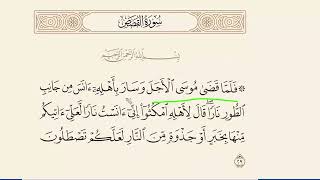 سُورَةُ القَصَصِ
بِسْمِ اللَّهِ الرَّحْمَٰنِ الرَّحِيمِ
۞ فَلَمَّا قَضَىٰ مُوسَى الْأَجَلَ وَسَارَ بِأَهْلِهِۦٓ ءَانَسَ مِن جَانِبِ
الطُّورِ نَارًاۖ قَالَ لِأَهْلِهِ امْكُثُوٓا۟ إِنِّىٓ ءَانَسْتُ نَارًا لَّعَلِّىٓ ءَاتِيكُم
مِّنْهَا بِخَبَرٍ أَوْ جَذْوَةٍ مِّنَ النَّارِ لَعَلَّكُمْ تَصْطَلُونَ